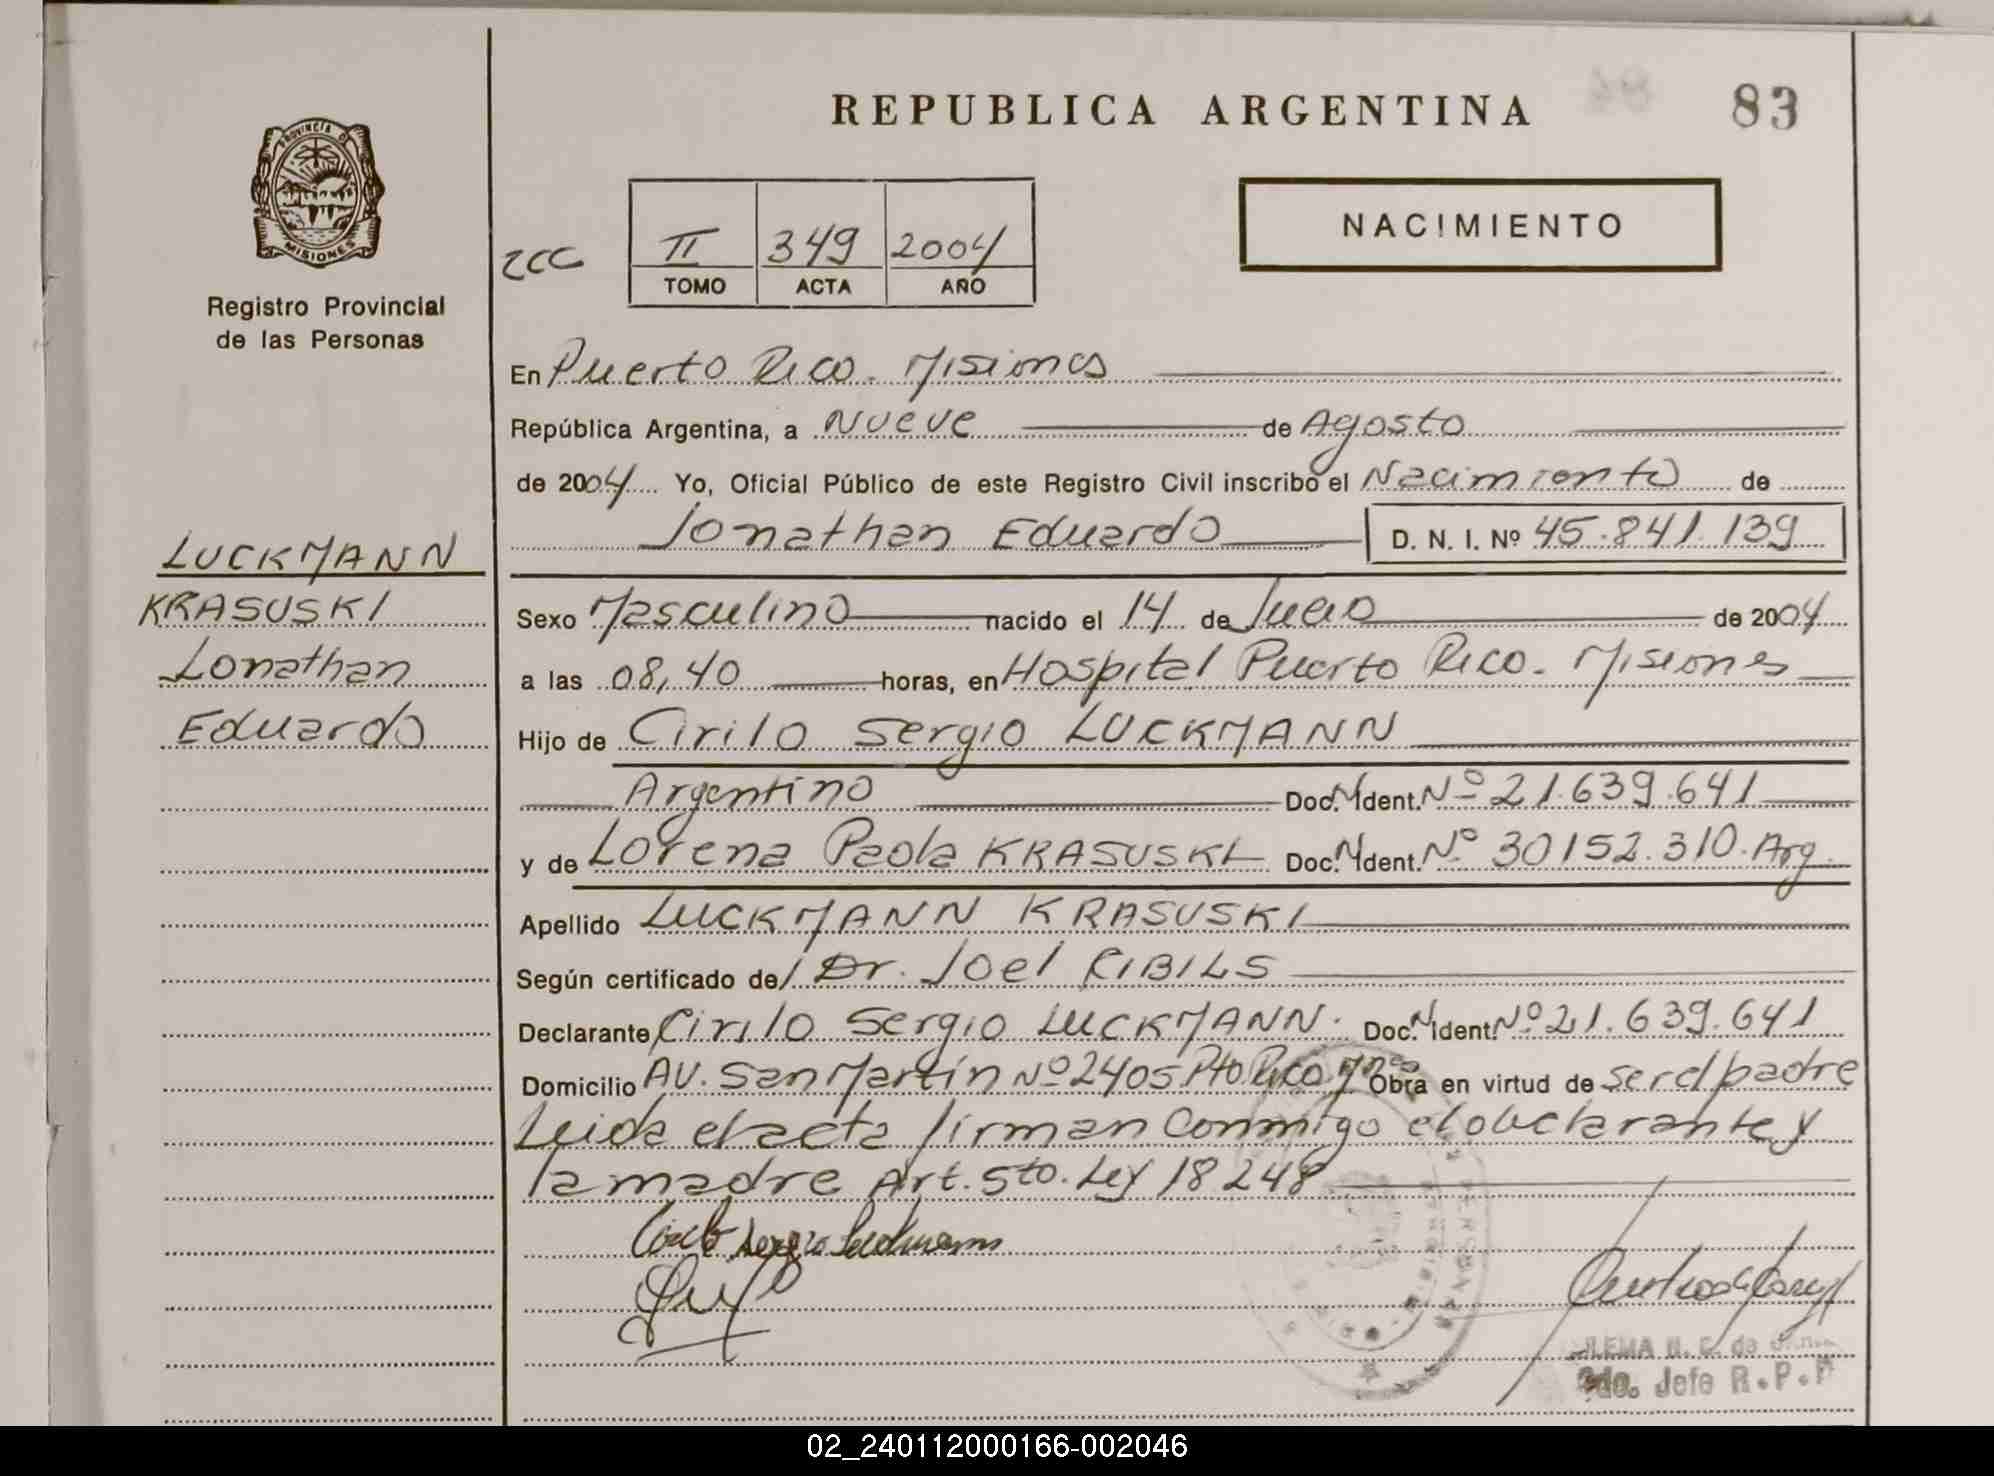 REPUBLICA ARGENTINA
83
PROVINCIA DE
MISIONES
Registro Provincial
de las Personas
NACIMIENTO
II 349 2004
TOMO ACTA AÑO
En Puerto Rico. Misiones
República Argentina, a Nueve de Agosto
de 2004 Yo, Oficial Público de este Registro Civil inscribo el Nacimiento de
Jonathan Eduardo D. N. I. Nº 45.841.139
LUCKMANN
KRASUSKI
Jonathan
Eduardo
Sexo Masculino nacido el 14 de Julio de 2004
a las 08,40 horas, en Hospital Puerto Rico. Misiones
Hijo de Cirilo Sergio LUCKMANN
Argentino Doc. N. Ident. Nº 21.639.641
y de Lorena Paola KRASUSKI Doc. N. Ident. Nº 30152.310. Arg.
Apellido LUCKMANN KRASUSKI
Según certificado del Dr. Joel RIBILS
Declarante Cirilo Sergio LUCKMANN. Doc. N. Ident. Nº 21.639.641
Domicilio AV. San Martín Nº 2405 Pto Rico Mnes Obra en virtud de ser el padre
Leida el acta firman conmigo el declarante y
la madre Art. 5to. Ley 18248
Cirilo Sergio Luckmann
H. C. de
2do. Jefe R.P.P
02_240112000166-002046